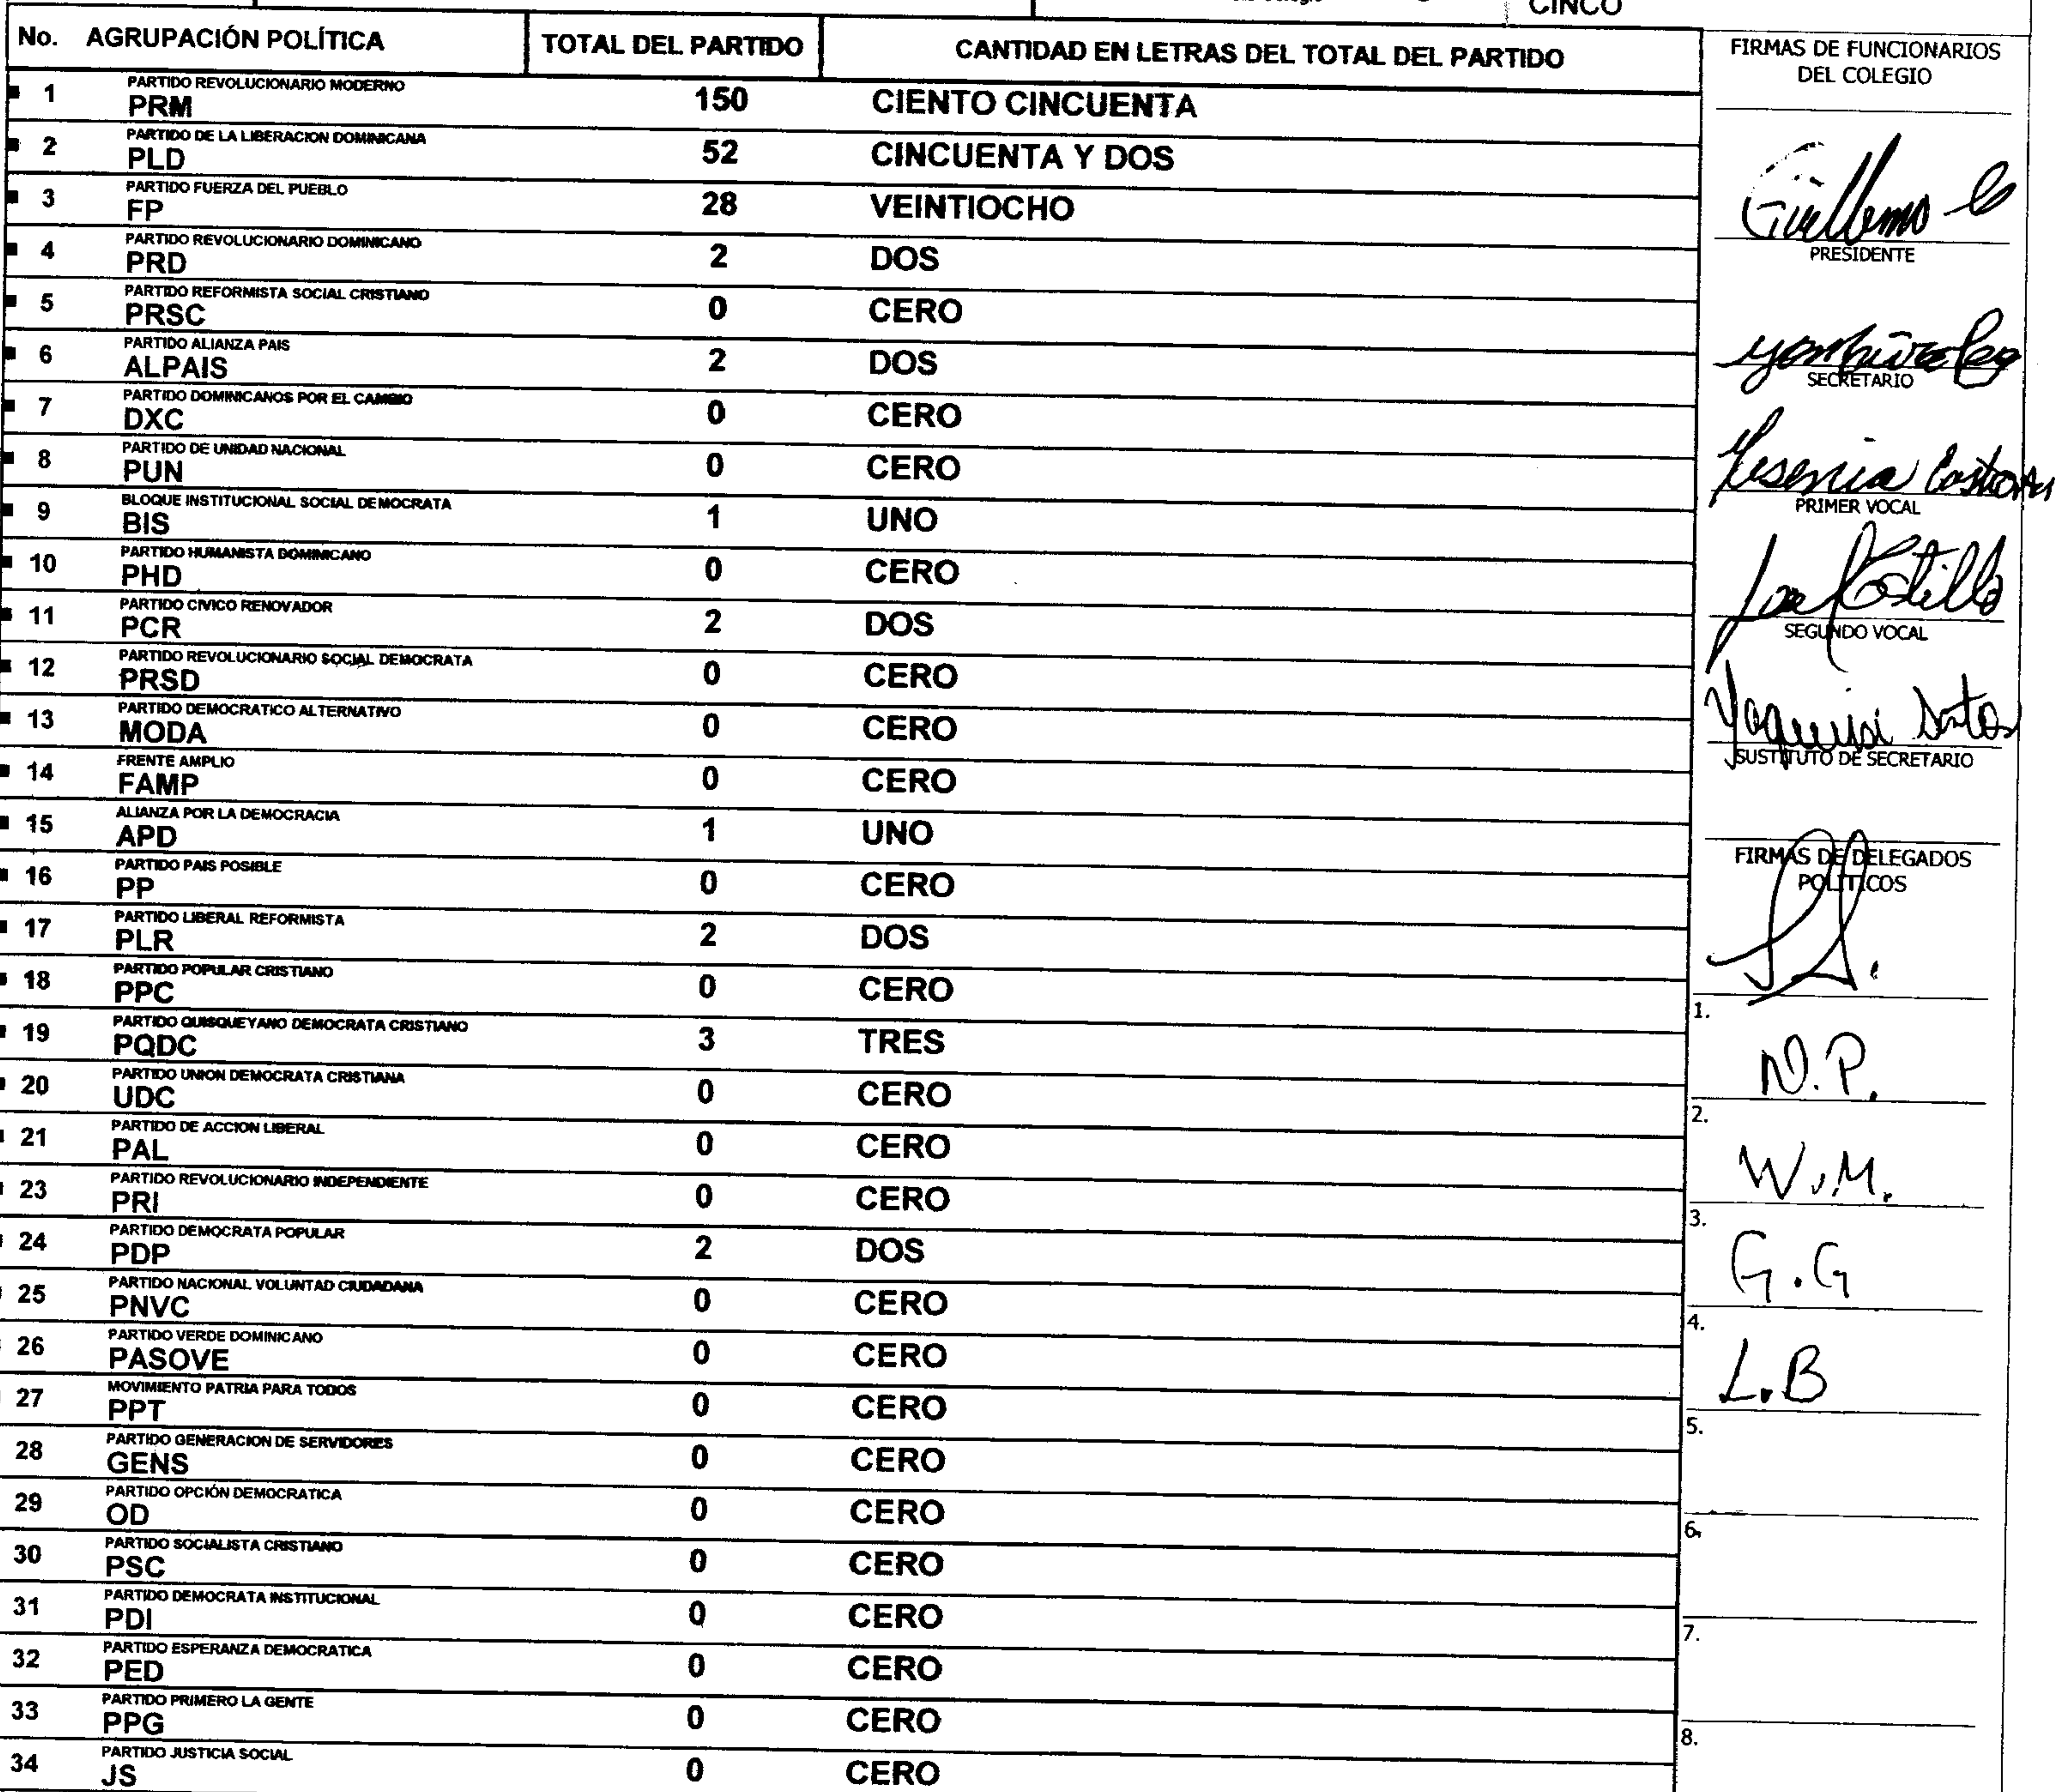 CINCO
No. AGRUPACIÓN POLÍTICA TOTAL DEL PARTIDO CANTIDAD EN LETRAS DEL TOTAL DEL PARTIDO
PARTIDO REVOLUCIONARIO MODERNO
1 PRM 150 CIENTO CINCUENTA
PARTIDO DE LA LIBERACION DOMINICANA
2 PLD 52 CINCUENTA Y DOS
PARTIDO FUERZA DEL PUEBLO
3 FP 28 VEINTIOCHO
PARTIDO REVOLUCIONARIO DOMINICANO
4 PRD 2 DOS
PARTIDO REFORMISTA SOCIAL CRISTIANO
5 PRSC 0 CERO
PARTIDO ALIANZA PAIS
6 ALPAIS 2 DOS
PARTIDO DOMINICANOS POR EL CAMBIO
7 DXC 0 CERO
PARTIDO DE UNIDAD NACIONAL
8 PUN 0 CERO
BLOQUE INSTITUCIONAL SOCIAL DEMOCRATA
9 BIS 1 UNO
PARTIDO HUMANISTA DOMINICANO
10 PHD 0 CERO
PARTIDO CIVICO RENOVADOR
11 PCR 2 DOS
PARTIDO REVOLUCIONARIO SOCIAL DEMOCRATA
12 PRSD 0 CERO
PARTIDO DEMOCRATICO ALTERNATIVO
13 MODA 0 CERO
FRENTE AMPLIO
14 FAMP 0 CERO
ALIANZA POR LA DEMOCRACIA
15 APD 1 UNO
PARTIDO PAIS POSIBLE
16 PP 0 CERO
PARTIDO LIBERAL REFORMISTA
17 PLR 2 DOS
PARTIDO POPULAR CRISTIANO
18 PPC 0 CERO
PARTIDO QUISQUEYANO DEMOCRATA CRISTIANO
19 PQDC 3 TRES
PARTIDO UNION DEMOCRATA CRISTIANA
20 UDC 0 CERO
PARTIDO DE ACCION LIBERAL
21 PAL 0 CERO
PARTIDO REVOLUCIONARIO INDEPENDIENTE
23 PRI 0 CERO
PARTIDO DEMOCRATA POPULAR
24 PDP 2 DOS
PARTIDO NACIONAL VOLUNTAD CIUDADANA
25 PNVC 0 CERO
PARTIDO VERDE DOMINICANO
26 PASOVE 0 CERO
MOVIMIENTO PATRIA PARA TODOS
27 PPT 0 CERO
PARTIDO GENERACION DE SERVIDORES
28 GENS 0 CERO
PARTIDO OPCIÓN DEMOCRATICA
29 OD 0 CERO
PARTIDO SOCIALISTA CRISTIANO
30 PSC 0 CERO
PARTIDO DEMOCRATA INSTITUCIONAL
31 PDI 0 CERO
PARTIDO ESPERANZA DEMOCRATICA
32 PED 0 CERO
PARTIDO PRIMERO LA GENTE
33 PPG 0 CERO
PARTIDO JUSTICIA SOCIAL
34 JS 0 CERO
FIRMAS DE FUNCIONARIOS
DEL COLEGIO
PRESIDENTE
SECRETARIO
Yesenia
PRIMER VOCAL
SEGUNDO VOCAL
SUSTITUTO DE SECRETARIO
FIRMAS DE DELEGADOS
POLITICOS
1.
N.P.
2.
W.M.
3.
G.G
4.
L.B
5.
6.
7.
8.